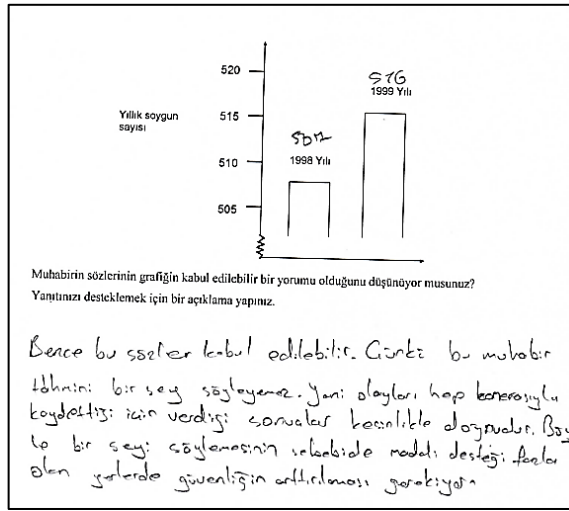 520
516
1999 Yılı
Yıllık soygun
sayısı
515
1998 Yılı
510
505
Muhabirin sözlerinin grafiğin kabul edilebilir bir yorumu olduğunu düşünüyor musunuz?
Yanıtınızı desteklemek için bir açıklama yapınız.
Bence bu sözler kabul edilebilir. Çünkü bu muhabir
tahmini bir şey söyleyemez. Yani olayları hep kamerasıyla
kaydettiği için verdiği sonuçlar kesinlikle doğrudur. Böy
le bir şeyi söylemesinin sebebide maddi desteği fazla
olan yerlerde güvenliğin arttırılması gerekiyor